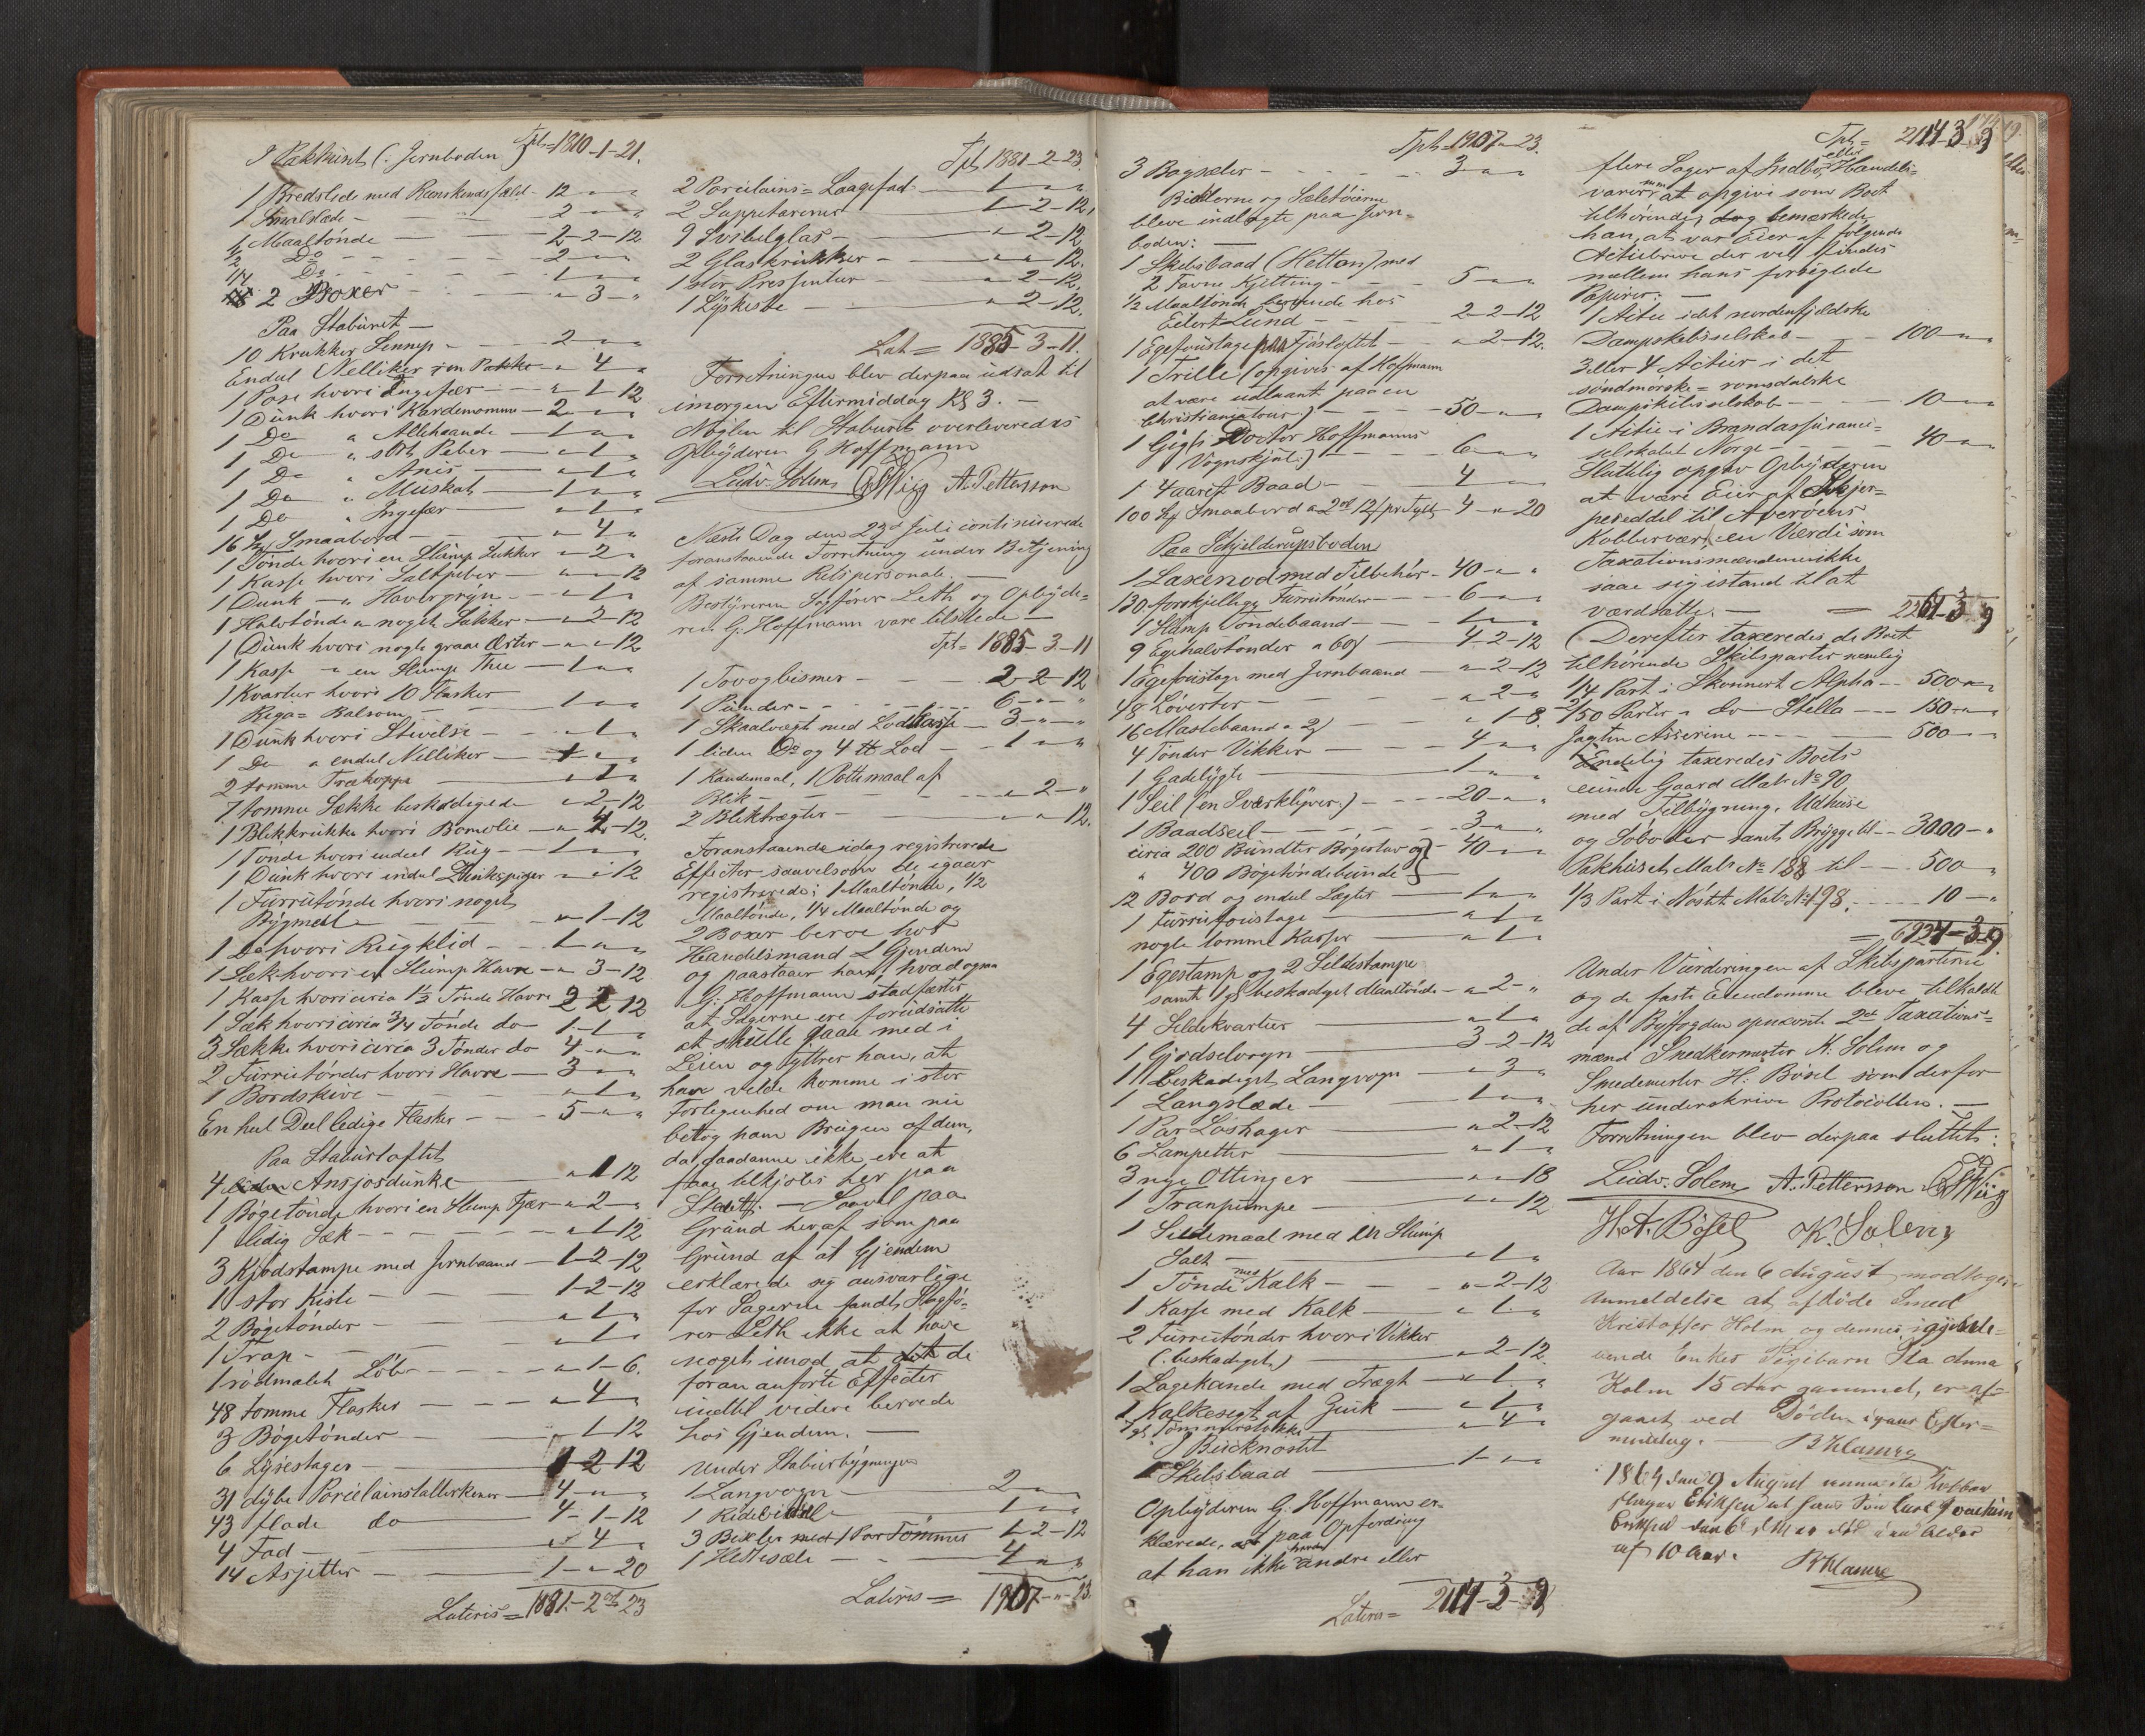 I Pakhuset (: Jernboden :) Tpt = 1810-1-21.
1 Bredslede med Rænskendsfæld - 12 " "
1 Smalslæde - 2 - " "
1 Maaltönde - 2-2-12
1/2 Do - 2 - " "
1/4 Do - 1 - " "
2 Boxer - " 3 - "
Paa Staburet -
10 Krukker Sennep - 2 - " "
Endeel Nelliker i en Pakke - " 4 "
1 Pose hvori Ingefær - " 1-12
1 Dunk hvori Kardemomme - 2 - " "
1 Do " Allehaande - 1 " "
1 Do " sort Peber - " 1 "
1 Do " Anis - " 1 "
1 Do " Muskat - 1 " "
1 Do " Ingefær - " 1 "
16 Smaabord - " 4 "
1 Tönde hvori en Slump Sukker - " 2 "
1 Kasse hvori Saltpeter - " " 12
1 Dunk - " Havregryn - " 1 "
1 Halvtönde " noget Sukker - " 2-12
1 Dunk hvori nogle graae Erter - " " 12
1 Kasse " en Slump Thee - 1 " "
1 Kvarter hvori 10 Flasker
Riga = Balsom - 1 " "
1 Dunk hvori Stivelse - " 1 "
1 Do " endeel Nelliker - 1 " "
2 tomme Trækopper - " 1 "
7 tomme Sække beskadigede - " 2-12
1 Blikkrukke hvori Bomolie - " 1-12.
1 Tönde hvori endeel Rug - 1 " "
1 Dunk hvori endeel Zinkspiger - " " 12
1 Furutönde hvori noget
Bygmeel - " 1-12
1 Do hvori Rugklid - 1 " "
1 Sæk hvori en Slump Havre - " 3-12
1 Kasse hvori circa 1 1/3 Tönde Havre 2 2 12
1 Sæk hvori circa 3/4 Tönde do - 1-1 "
3 Sække hvori circa 3 Tönder do 4 - " "
2 Furutönder hvori Havre - 3 - "
1 Bordskive - " 1 "
En heel Deel ledige Flasker - 5 - " "
Paa Staburloftet
4 Ansjosdunke - " 1 12
1 Bøgetönde hvori en Slump Fjær " 2 - "
1 ledig Sæk - " 1-12
3 Kjödstampe med Jernbaand - 1-2-12
1 stor Kiste - 1-2-12
2 Bögetönder - " 1 "
1 Trap - " 1 "
1 rödmalet Löb - " 1-6.
48 tomme Flasker - " 4 "
3 Bögetönder - " 1 12
6 Lysestager - 1 2 12
31 dybe Porcelainstallerkener - 4 - " "
43 flade do - 4-1-12
4 Fad - " 4 "
14 Asjetter - 1 - " 20
Lateris = 1881.-2 23
Tpt 1881-2-23
2 Porcelains = Laagefad - 1 " "
2 Suppeterriner - 1-2-12,
9 Svibelglas - " 2-12
2 Glaskrukker - " " 12.
1 stor Presenter - " 2-12.
1 Lyskiste - " 2-12.
Lat = 1885-3-11.
Forretningen blev derpaa udsat til
imorgen Eftermiddag Kl 3. -
Nøglen til Staburet overleveredes
Opbyderen G Hoffmann
Ludv. Solem A. Pettersson
Næste Dag den 23de Juli continuerede
foranstaaende Forretning under Betjening
af samme Retspersonale. -
Bestyreren Sagfører Leth og Opbyde-
ren G: Hoffmann vare tilstede -
Tpt = 1885-3-11
1 Tovogbismer - 2-2-12
1 Punder - 6 - " "
1 Skaalvægt med Lodkasse - 3 - " "
1 liden Do og 4 ℔ Lod - 1 " "
1 Kandemaal, 1 Pottemaal af
Blik - " 2 - "
2 Bliktrægter - " " 12.
Foranstaaende idag registrerede
Effecter saavelsom de igaar
registrerede: 1 Maaltönde, 1/2
Maaltönde, 1/4 Maaltönde og
2 Boxer beroe hos
Handelsmand L Gjendem
og paastaaer han, hvad ogsaa
G: Hoffmann stadfæster
at Sagerne ere forudsatte
at skulle gaae med i
Leien og yttrer han, at
han vilde komme i stor
Forlegenhed om man nu
betog ham Brugen af dem,
da saadanne ikke ere at
faae tilkjøbs her paa
Stedet. - Saavel paa
Grund heraf som paa
Grund af at Gjendem
erklærede sig ansvarlig
for Sagerne fandt Sagfö-
rer Leth ikke at have
noget imod, at de
foran anførte Effecter
indtil videre beroede
hos Gjendem. -
Under Staburbygningen
1 Langvogn - 2 - "
1 Ridebidsel - 1 - "
3 Bixler med 1 Par Tömmer 1-2-12
1 Hestesæle - 4 " "
Lateris = 1907 - " - 23.
Tpt = 1907 - " 23.
3 Bogsæler - 3 - " "
Bidslerne og Sæletöierne
bleve indlagte paa Jern-
boden: -
1 Skibsbaad (Hetten) med
2 Favne Kjetting - 5 - " "
1/2 Maaltönde beroende hos
Eilert Lund - 2-2-12
1 Egefoustage paa Fjösloftet - " 2-12.
1 Trille (opgives af Hoffmann
at være udlaant paa en
Christianiatour:) - 50 - " "
1 Gig (: Doctor Hoffmanns
Vognskjul:) - 6 - " "
1 4aaret Baad - 4 "
100 Smaabord a 2 12 pr Tylt - 4 - " 20
Paa Schjelderupsboden
1 Laxenod med Tilbehör - 40 - " "
130 forskjellige Furutönder - 6 - "
1 Stamp Tøndebaand - 1 - "
9 Egehalvtønder a 60 - 4-2-12
1 Egefoustage med Jernbaand - " 2-12
48 Löverter - " 2 - "
16 Mastebaand a 2 - " 1-8.
4 Tönder Vikker - 4 " "
1 Gadelygte - 1 - "
1 Seil (en Sværklyver:) - 20 - " "
1 Baadseil - 3 " "
circa 200 Bundter Bögestav og } 40 - "
" 400 Bögetöndebunde }
12 Bord og endeel Lægter - 1 - "
1 Furufoustage - " 1 "
nogle tomme Kasser - " 1 "
1 Egestamp og 2 Sildestampe
samt 1 gl beskadiget Maaltönde - " 2 - "
4 Sildekvarter - " 1 "
1 Gjødselvogn - 3-2-12
1 beskadiget Langvogn - " 3 "
1 Langslæde - 1 - "
1 Par Loshager - " 2-12
6 Lampetter - " 1 "
3 nye Ottinger - " " 18
1 Tranpumpe - " " 12
1 Sildemaal med en Slump
Salt - " 1 "
1 Tönde med Kalk - " 2-12
1 Kasse med Kalk - " 1 "
2 Furutönder hvori Vikker
(: beskadiget:) - " 2-12
1 Lagekande med Tragt - " 1 "
1 Kalkesegt af Zink - " 1 "
7 gl Tömmerstokke - " 4 "
I Bucknostet
1 Skibsbaad - 1 - "
Opbyderen G. Hoffmann er-
klærede, paa Opfordring
at han ikke havde andre eller
Lateris = 2114-3-9
Tpt = 2114-3-9
flere Sager af Indbo, eller Handels-
varer at opgive som Boet
tilhörende, dog bemærkede
han, at var Eier af følgende
Actiebreve der vil findes
mellem hans forseglede
Papirer: -
1 Actie i det nordenfjeldske
Dampskibsselskab - 100 - " "
3 eller 4 Actier i det
søndmørske = romsdalske
Dampskibsselskab - 10 - "
1 Actie i Brandassurance-
selskabet Norge - 40 - "
Sluttelig opgav Opbyderen
at være Eier af Skjer-
peseddel til Averöens
Kobberværk, en Værdi som
Taxationsmændene ikke
saae sig istand til at
værdsætte. - = 2264-3-9
Derefter taxeredes de Boet
tilhørende Skibsparter nemlig
1/4 Part i Skonnert Alpha - 500 " "
2/50 Parter " do Stella - 150 - "
Jagten Asserine - 500 - "
Endelig taxeredes Boets
eiende Gaard Matr No 90
med Tilbygning, Udhuse
og Söboder samt Brygge til - 3000 - "
Pakhuset Matr No 188 til - 500 "
1/3 Part i Nöstet Matr No 198. - 10 - "
= 6924-3-9
Under Vurderingen af Skibsparterne
og de faste Eiendomme bleve tilkaldt
de af Byfogden opnævnte 2de Taxations-
mænd Snedkermester K: Solem og
Smedemester H: Bösel som derfor
her underskrive Protocollen. -
Forretningen blev derpaa sluttet:
Ludv. Solem A. Pettersson
H. A. Bösel K. Solem
Aar 1864 den 6 August modtoges
Anmeldelse at afdöde Smed
Kristoffer Holm og dennes igjenle-
vende Enkes Pigebarn Ila Anna
Holm 15 Aar gammel, er af-
gaaet ved Döden igaar Efter-
middag. -
1864 den 9 August
Eriksen at hans Søn Carl Joachim
Eriksen den 6 Alder
af 10 Aar.